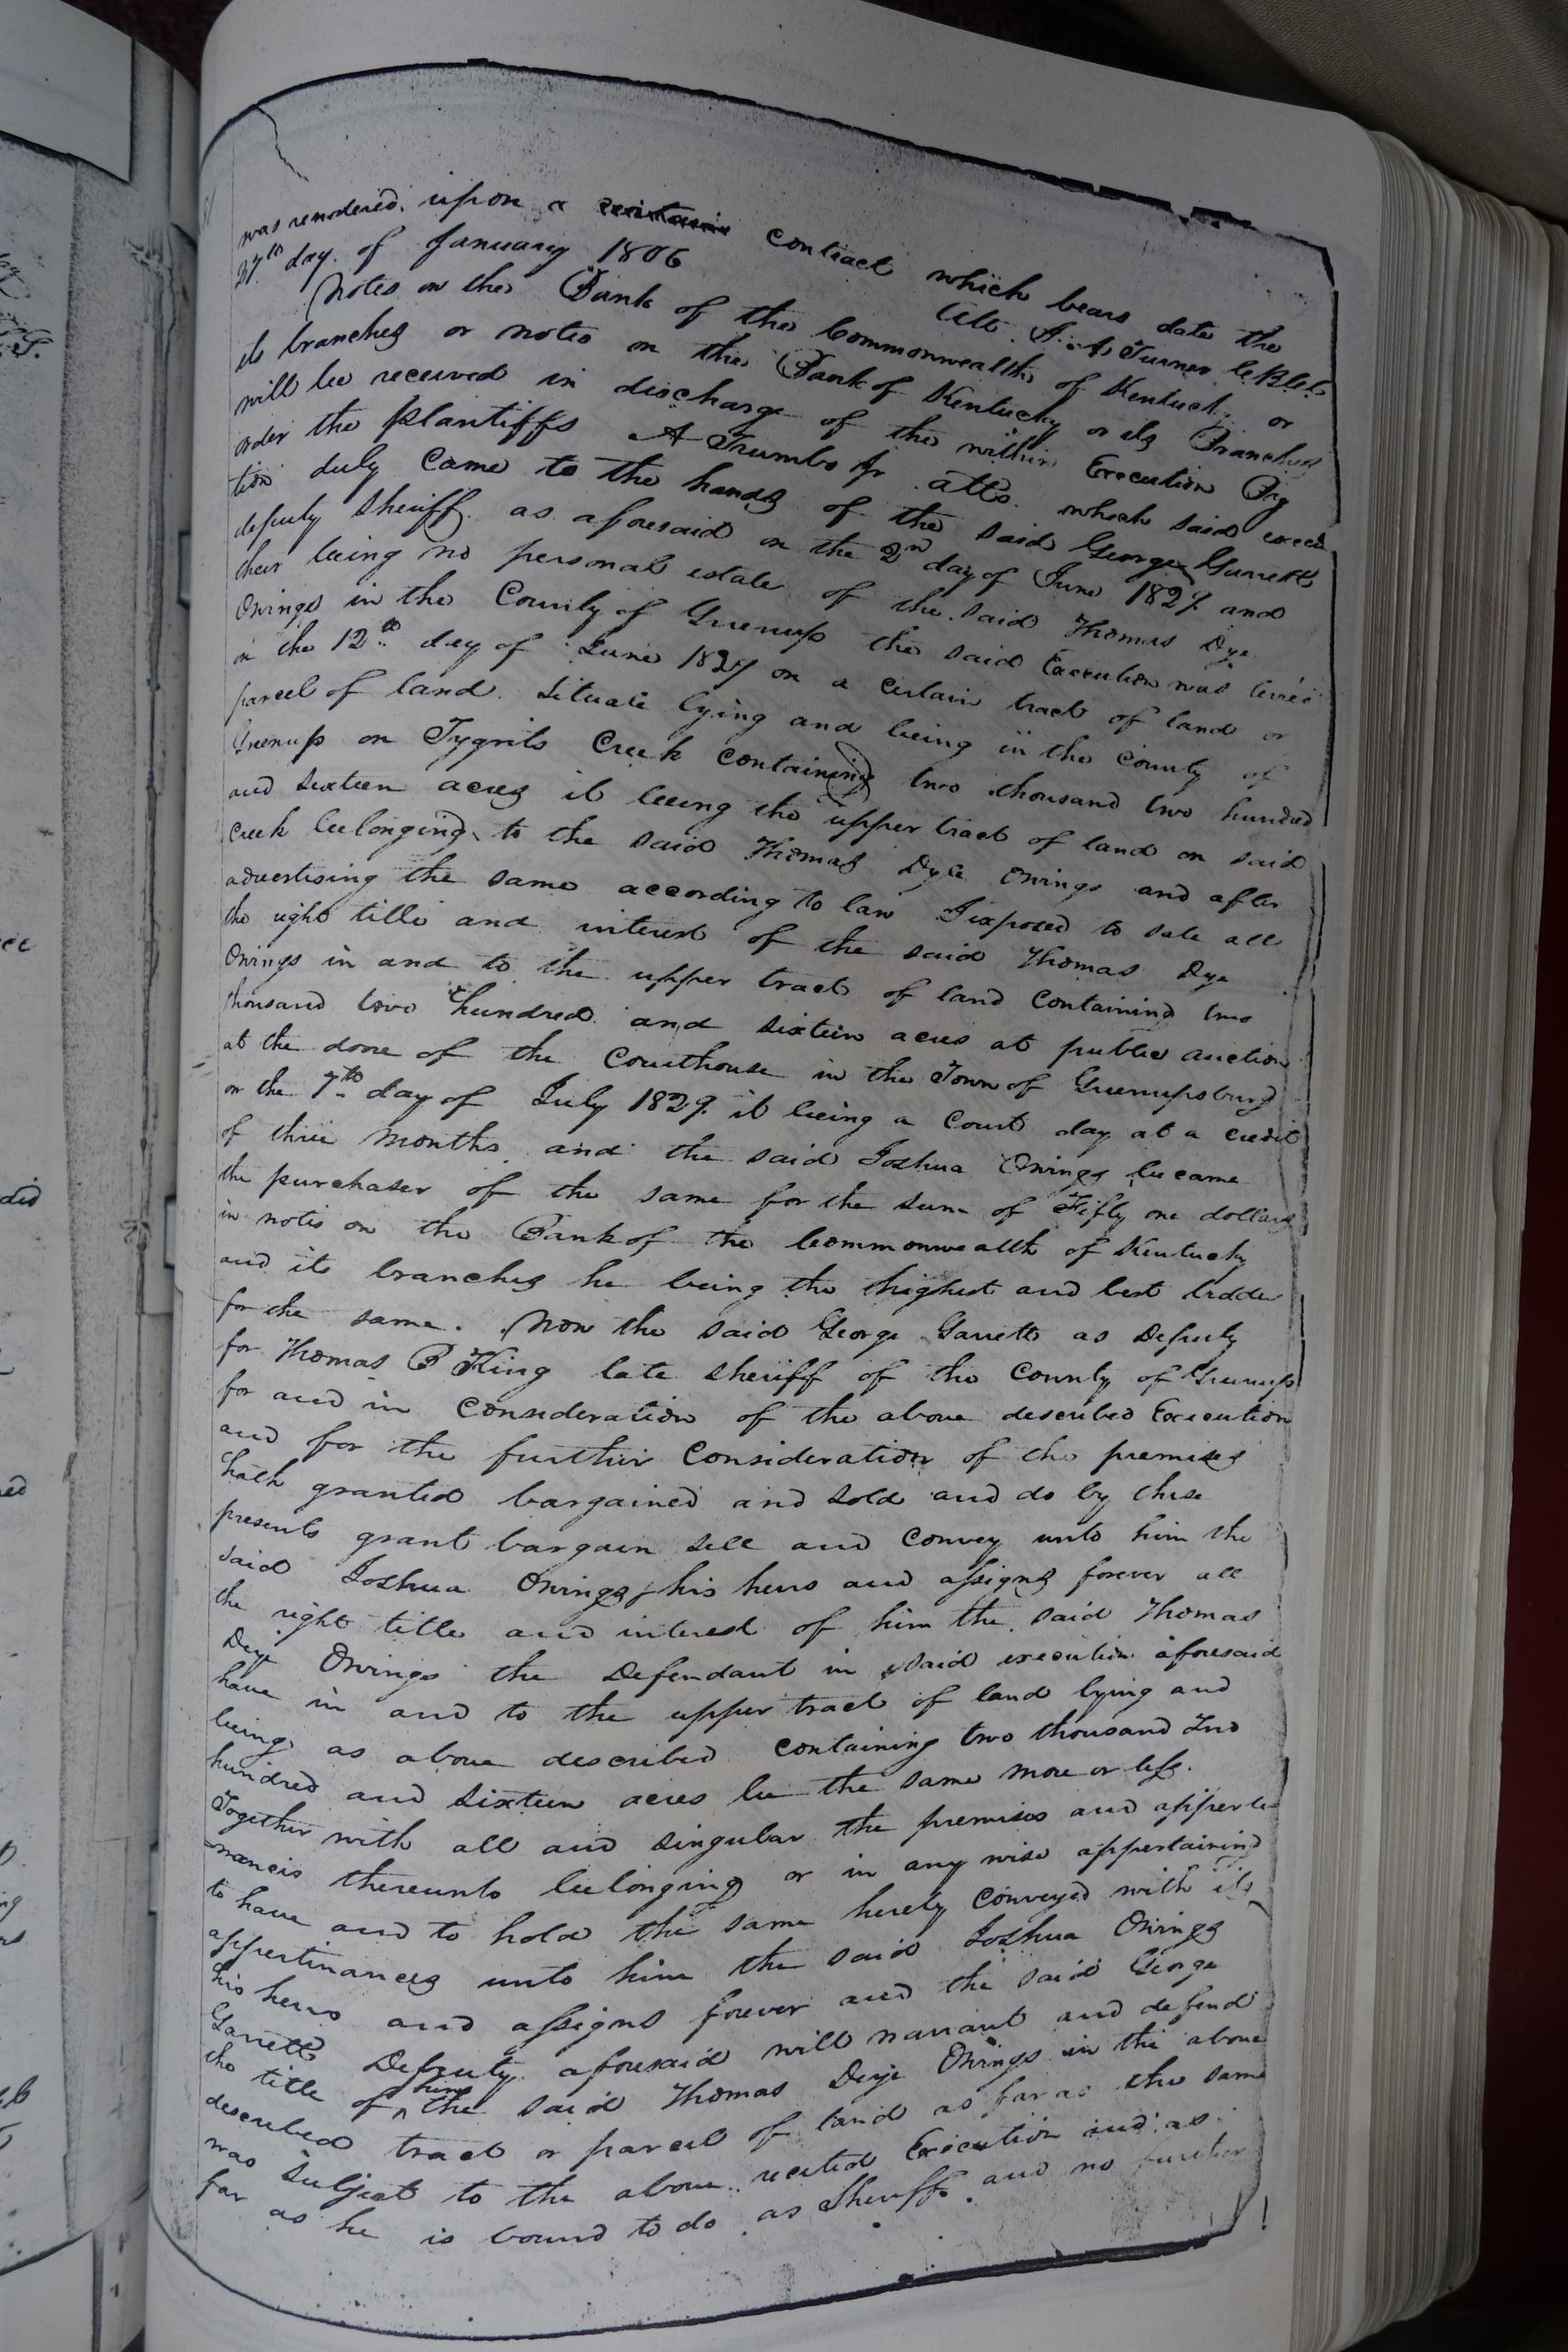 was rendered upon a contract which bears date the
27th day of January 1806 Att. J. A. Turner C.B.C.C.
Notes on the Bank of the Commonwealth of Kentucky or
its branches or notes on the Bank of Kentucky or its Branches
will be received in discharge of the within Execution By
order the plantiffs A Trumbo Jr atto. which said execu
tion duly Came to the hands of the said George Garrett
deputy Sheriff as aforesaid on the 2nd day of June 1829 and
their being no personal estate of the said Thomas Dye
Owings in the County of Greenup the said Execution was levied
on the 12th day of June 1829 on a certain tract of land or
parcel of land Situate lying and being in the County of
Greenup on Tygrits Creek containing two thousand two hundred
and sixteen acres it being the upper tract of land on said
Creek belonging to the said Thomas Dye Owings and after
advertising the same according to law I exposed to sale all
the right title and interest of the said Thomas Dye
Owings in and to the upper tract of land Containing two
thousand two hundred and sixteen acres at public auction
at the dore of the Courthouse in the Town of Greenupsburg
on the 7th day of July 1829 it being a Court day at a credit
of three months and the said Joshua Owings became
the purchaser of the same for the sum of Fifty one dollars
in notes on the Bank of the Commonwealth of Kentucky
and its branches he being the highest and best bidder
for the same. Now the said George Garrett as Deputy
for Thomas B King late Sheriff of the County of Greenup
for and in Consideration of the above described Execution
and for the further Consideration of the premises
hath granted bargained and sold and do by these
presents grant bargain sell and Convey unto him the
said Joshua Owings his heirs and assigns forever all
the right title and interest of him the said Thomas
Deye Owings the Defendant in said execution aforesaid
have in and to the upper tract of land lying and
being as above described containing two thousand two
hundred and sixteen acres be the same more or less.
Together with all and singular the premises and apperte
nances thereunto belonging or in any wise appertaining
to have and to hold the same hereby Conveyed with its
appertinances unto him the said Joshua Owings
his heirs and assigns forever and the said George
Garrett Deputy aforesaid will warrant and defend
the title of him the said Thomas Deye Owings in the above
described tract or parcel of land as far as the same
was Subject to the above recited Execution and as
far as he is bound to do as Sheriff and no further